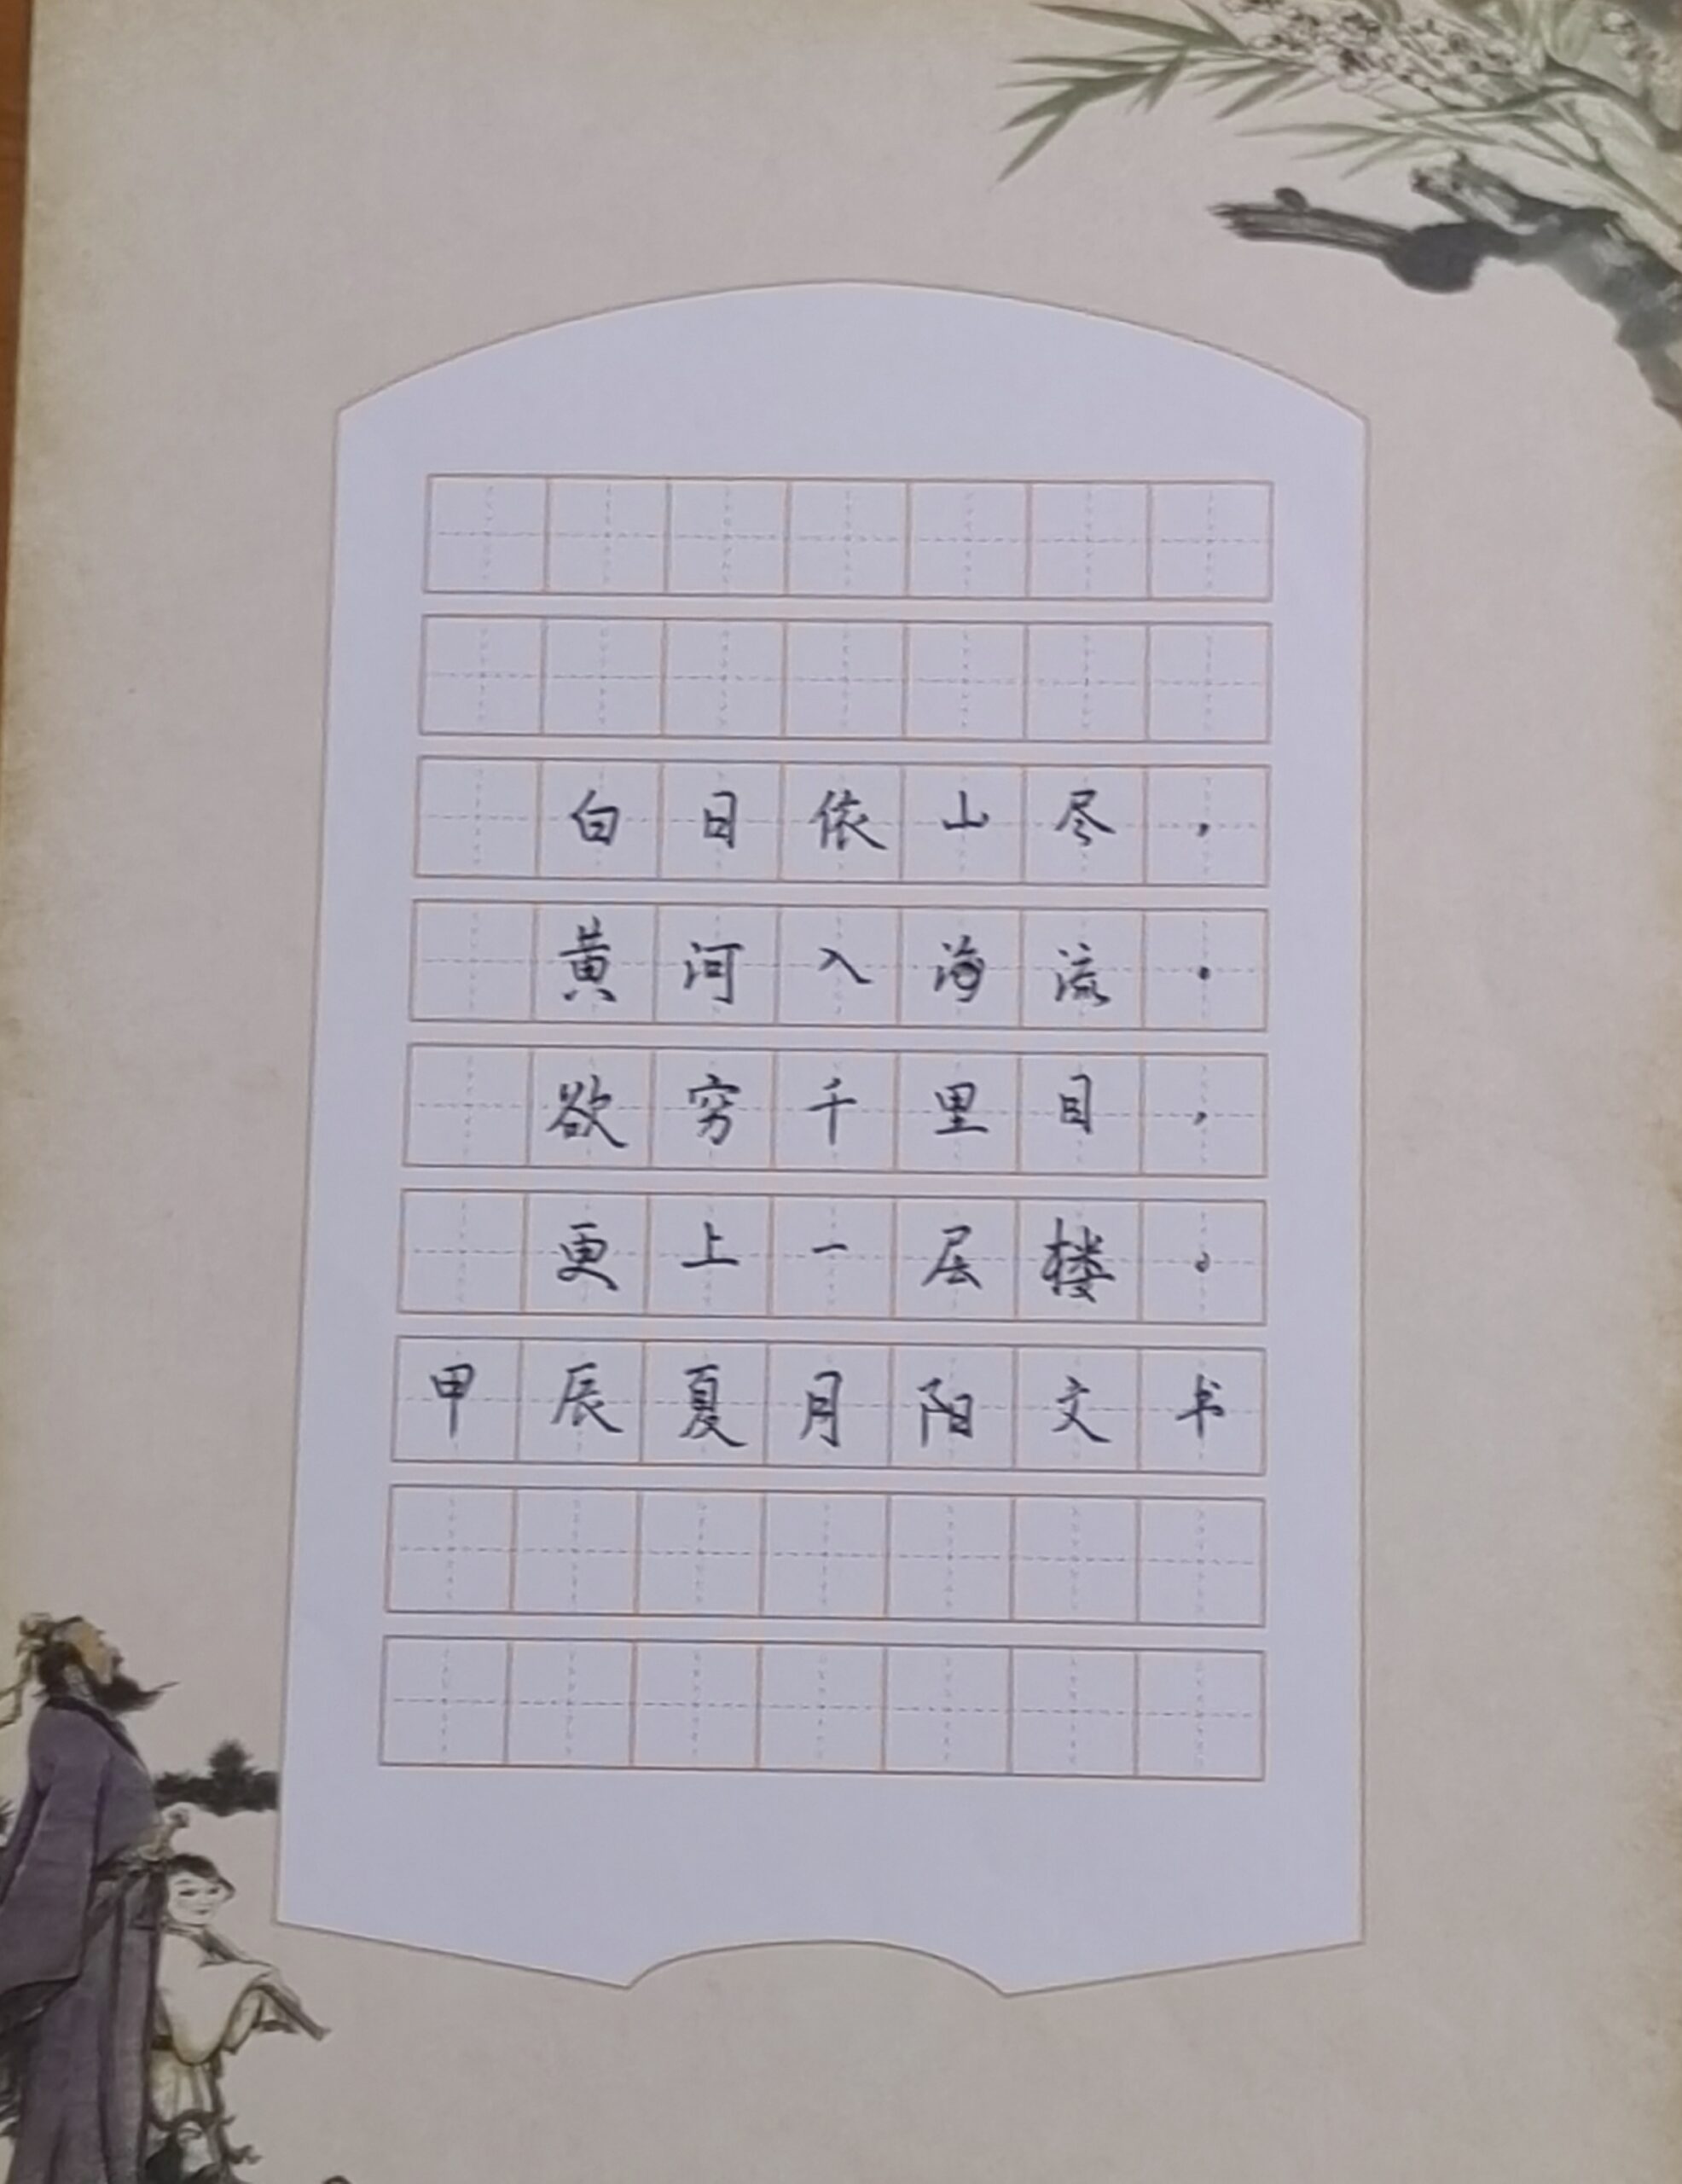 白日依山尽，
黄河入海流。
欲穷千里目，
更上一层楼。
甲辰夏月阳文书